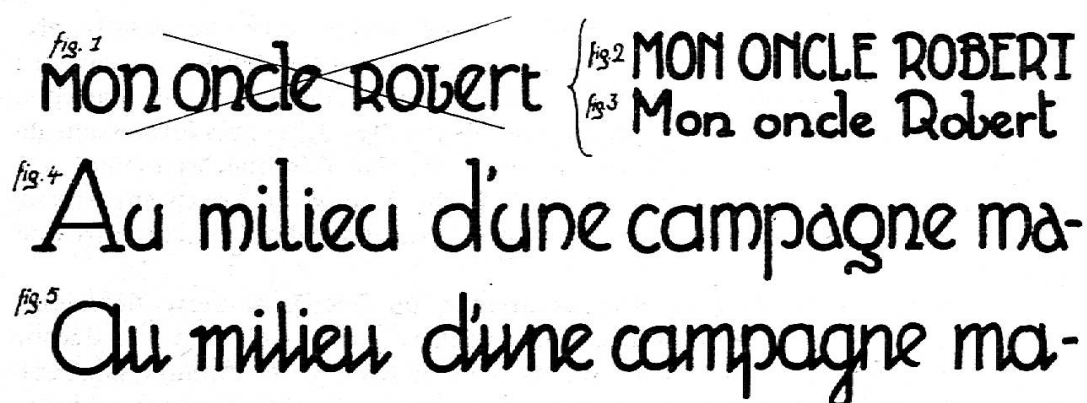 fig. 1
Mon oncle Robert
fig. 2 MON ONCLE ROBERT
fig 3 Mon oncle Robert
fig. 4 Au milieu d'une campagne ma-
fig. 5 Au milieu d'une campagne ma-